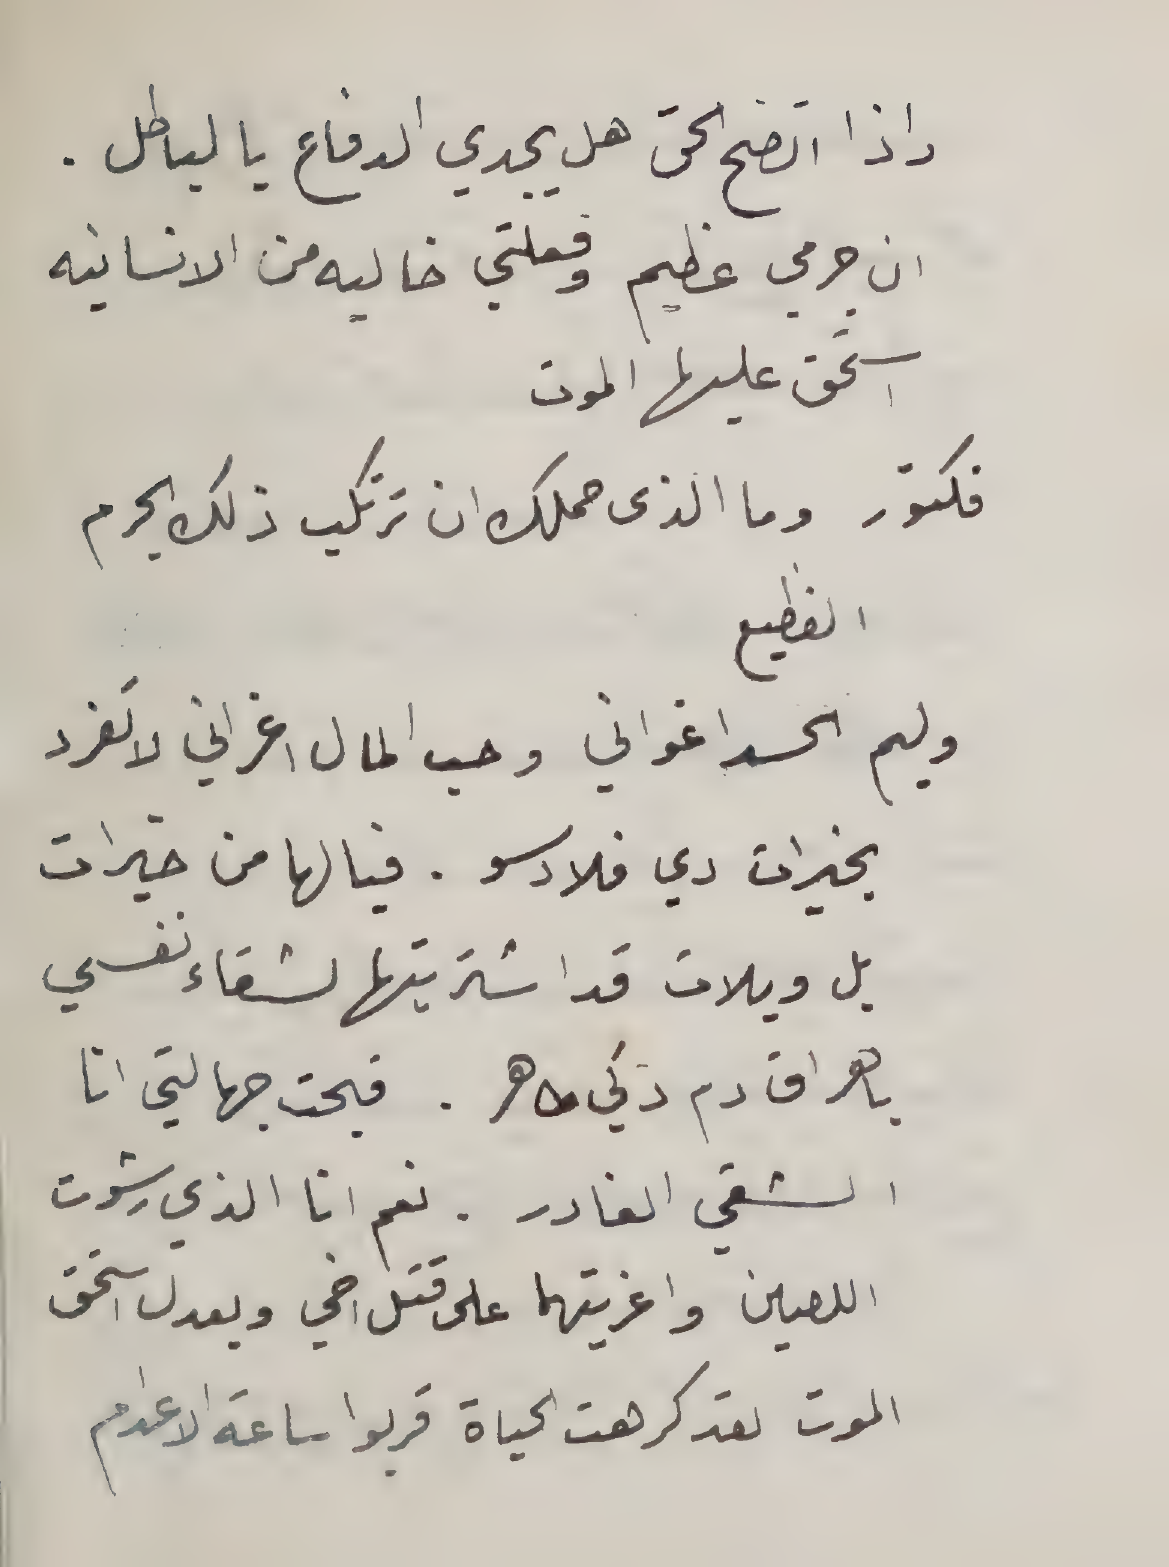 واذا اتضح الحق هل يجدي الدفاع بالباطل .
ان جرمي عظيم وفعلتي خاليه من الانسانيه
استحق عليها الموت
فكتور وما الذى حملك ان ترتكب ذلك الجرم
الفظيع
وليم الحسد اغواني وحب المال اغراني لاتفرد
بخيرات دي فلادسو . فيالها من خيرات
بل ويلات قد اشتريتها لشقاء نفسي
باهراق دم ذكي طاهر . قبحت جهالتي انا
الشقي الغادر . نعم انا الذي رشوت
اللصين واغريتهما على قتل اخي وبعدل استحق
الموت لقد كرهت الحياة قربوا ساعة الاعدام